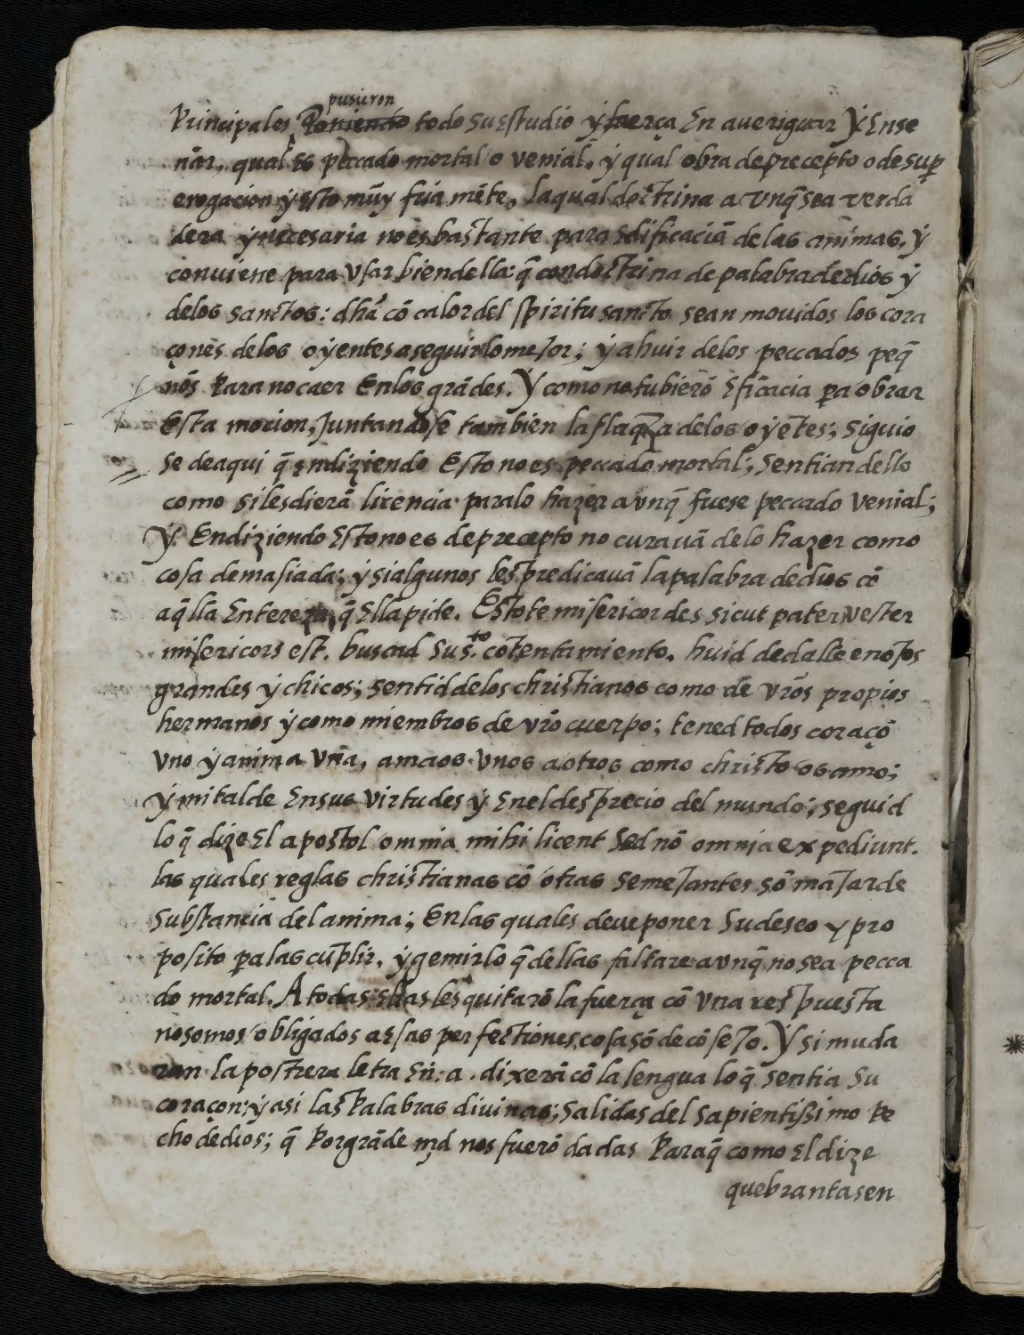 pusieron
Principales, Poniendo todo su Estudio ý fuerça En averiguar Ý Ense
ñar, qual es peccado mortal o venial, ý qual obra de precepto o de super
erogacion ý Esto mūy fria mēte, laqual doctrina a vnq̃ sea verda
dera ý necesaria no es bastante para Edificaciā de las animas, ý
conviene para vsar bien della: q̃ con doctrina de palabra de dios ý
delos sanctos: dhā cō calor del spiritu sancto sean mouidos los cora
çones delos oýentes a seguir lo mejor; ý a huir delos peccados peq̃
ños Para no caer Enlos grādes. Ý como no tubierō Eficacia pa obrar
Esta mocion, Juntandose tambien la flaq̃za delos oýētes; siguio
se de aqui q̃ Endiziendo Esto no es peccado mortal; sentian dello
como si les dierā licencia para lo hazer a vnq̃ fuese peccado venial;
Ý Endiziendo Esto no es de precepto no curauā de lo hazer como
cosa demasiada; ý si algunos les predicauā la palabra de dios cō
aq̃lla Entereza q̃ Ella pide. Estote misericordes sicut pater vester
misericors est. buscad su s.to cōtentamiento. huid de dalle enojos
grandes ý chicos; sentid delos christianos como de vrōs propios
hermanos ý como miembros de vrō cuerpo; tened todos coraçō
vno ý anima vna, amaos vnos a otros como christo os amo;
ý mitalde Ensus virtudes ý Enel desprecio del mundo; seguid
lo q̃ dize El apostol omnia mihi licent sed nō omnia expediunt.
las quales reglas christianas cō otras semejantes sō majar de
substancia del anima; Enlas quales deue poner su deseo y pro
posito pa las cūplir, ý gemir lo q̃ dellas faltare a vnq̃ no sea pecca
do mortal. A todas Estas les quitarō la fuerça cō vna respuesta
no somos obligados a Esas perfectiones, cosa sō de cōsejo. Ý si muda
ran la postrera letra En: a. dixerā cō la lengua lo q̃ sentia su
coraçon: ý asi las Palabras divinas; salidas del sapientissimo Pe
cho de dios; q̃ Por grāde mrd nos fuerō dadas Para q̃ como El dize
quebrantasen